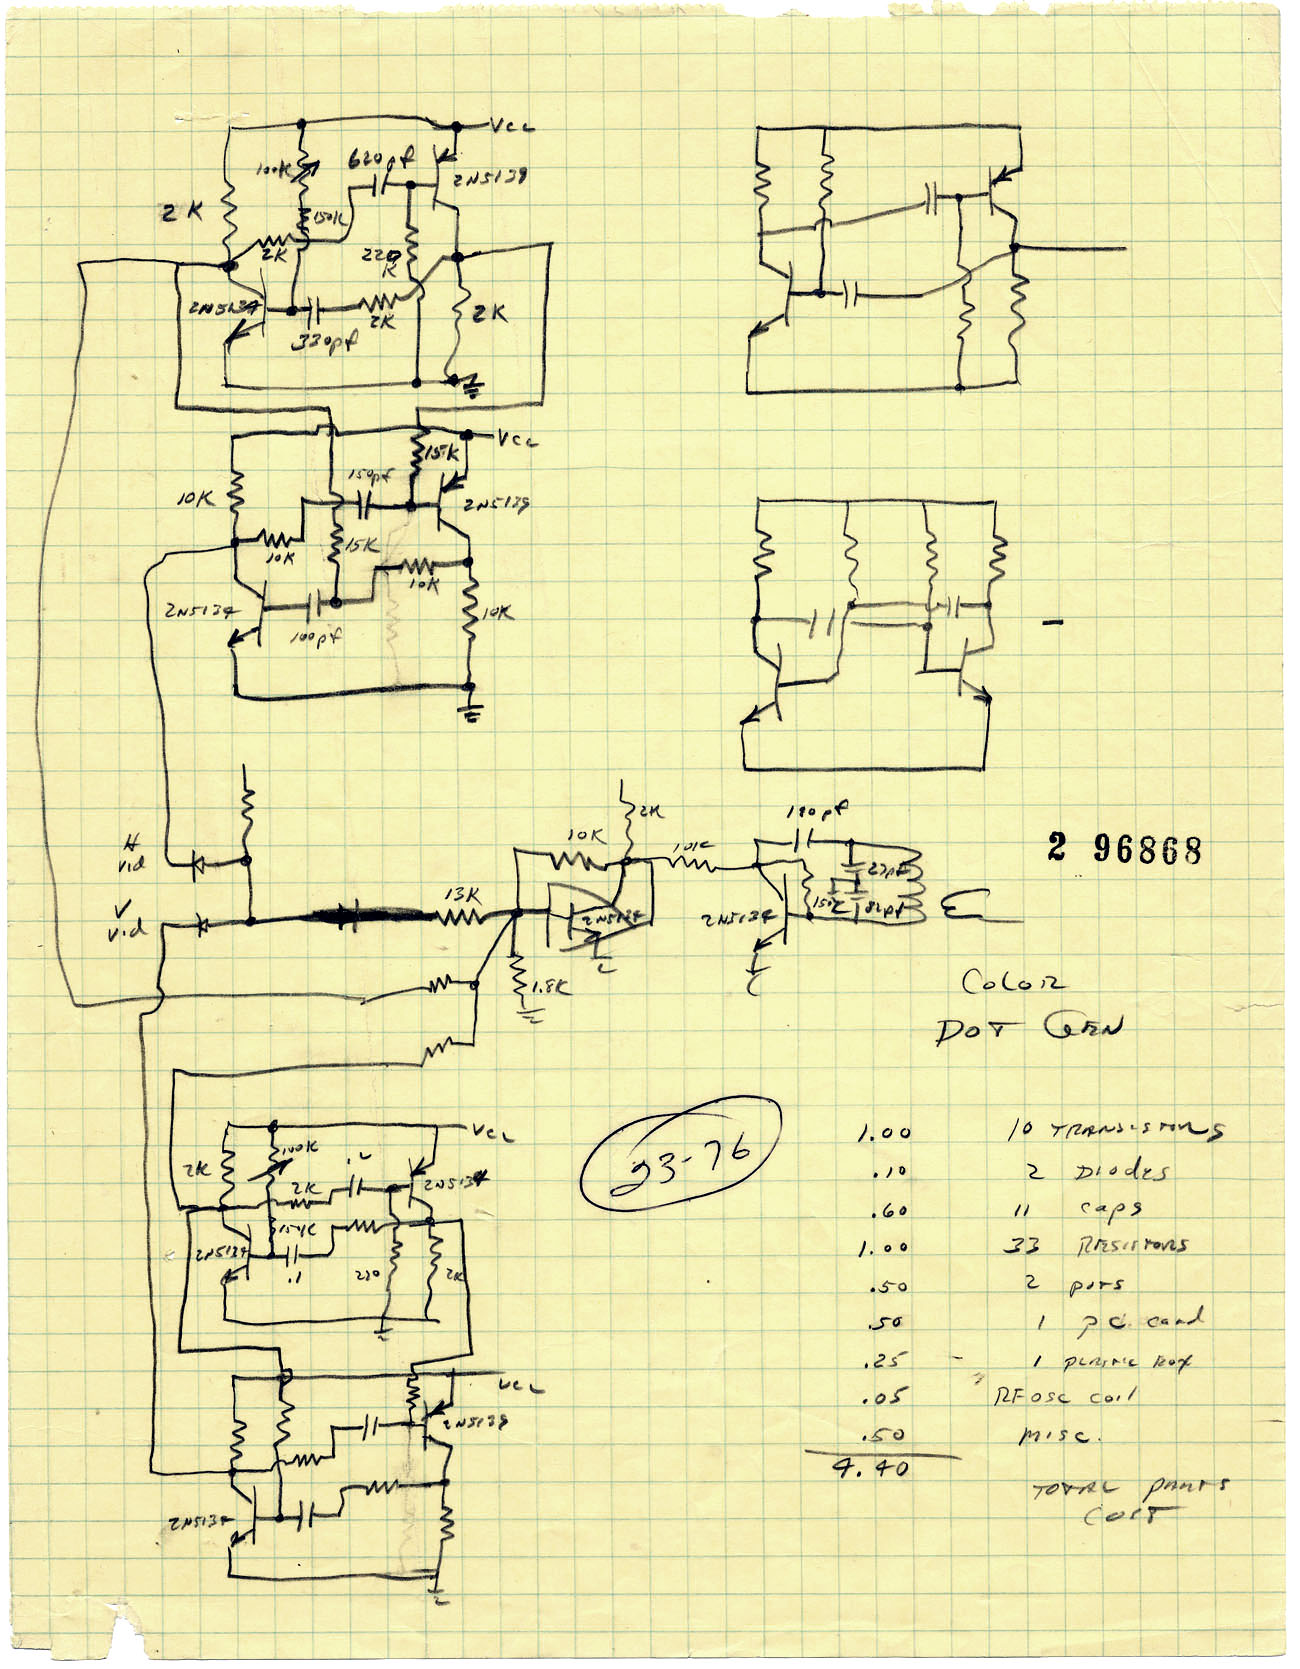 Vcc
100K
620pf
2N5139
2K
150K
2K
220
K
2N5134
2K
2K
330pf
Vcc
15K
150pf
10K
2N5139
10K
15K
10K
2N5134
10K
100pf
2K
180pf
H
vid
10K
10K
2 96868
27pf
13K
150K
82pf
V
vid
2N5134
2N5134
1.8K
COLOR
DOT GEN
23-76
Vcc
100K
2K
2K
2N5134
2N5134
.1
220
2K
1.00 10 TRANSISTORS
.10 2 DIODES
.60 11 caps
1.00 33 RESISTORS
.50 2 pots
.50 1 pc card
.25 - 1 PLASTIC BOX
.05 RF OSC coil
.50 MISC.
4.40
TOTAL PARTS
COST
Vcc
2N5139
2N5134